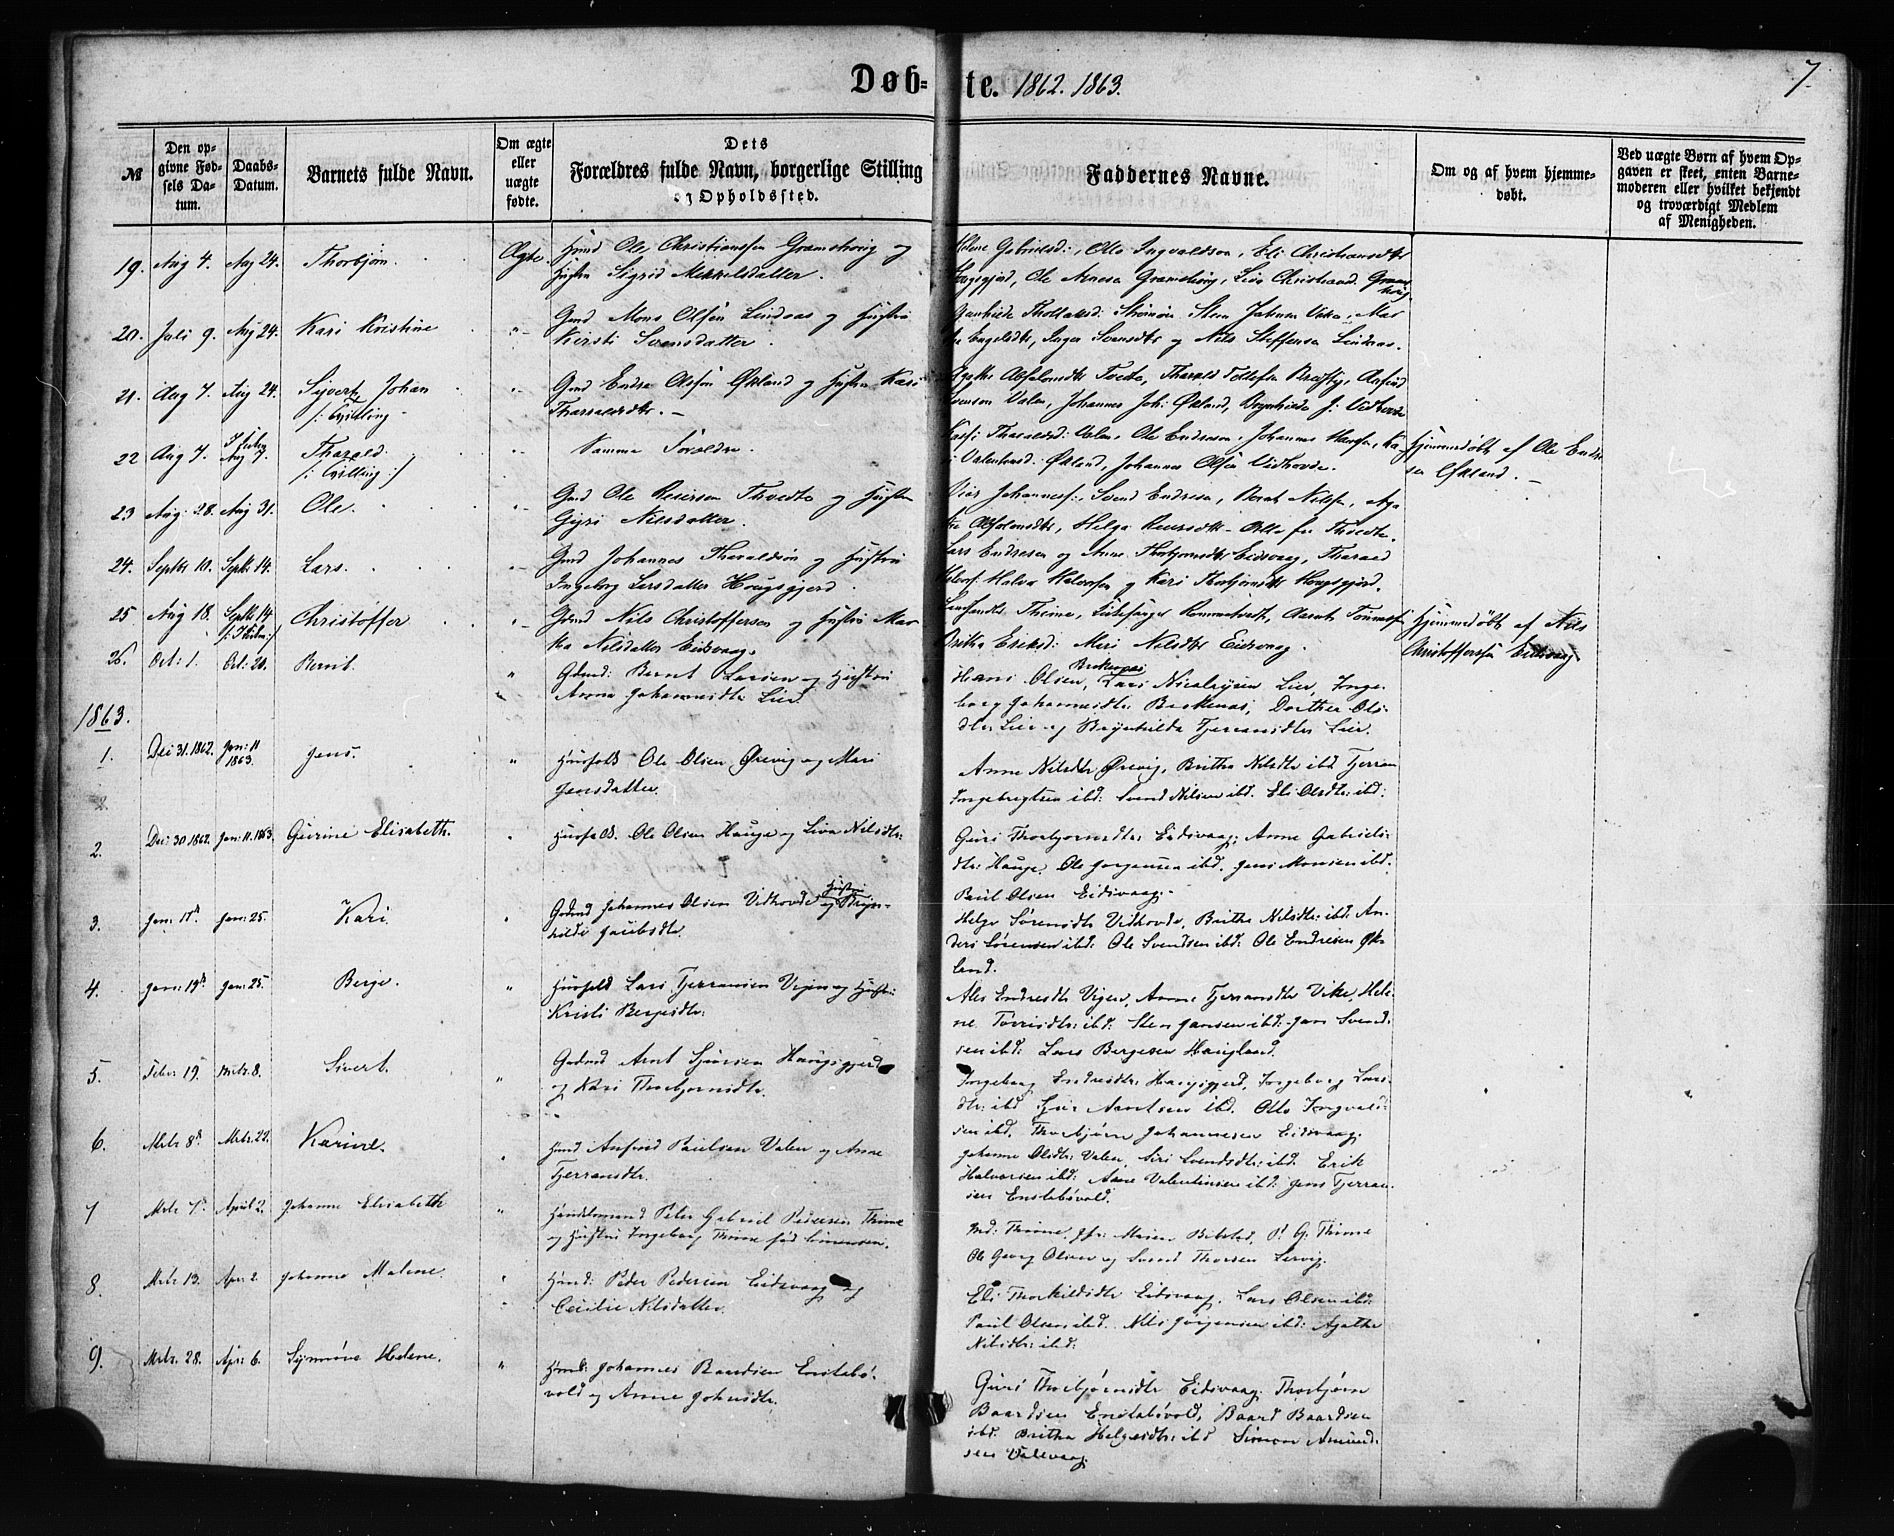 Døb=te. 1862. 1863.
7.
№
Den opgivne Fødsels Datum.
Daabs-Datum.
Barnets fulde Navn.
Om ægte eller uægte fødte.
Dets Forældres fulde Navn, borgerlige Stilling og Opholdssted.
Faddernes Navne.
Om og af hvem hjemmedøbt.
Ved uægte Børn af hvem Opgaven er skeet, enten Barnemoderen eller hvilket bekjendt og troværdigt Medlem af Menigheden.
19. Aug 4. Aug 24. Thorbjørn. Ægte. Hmd Ole Christianssen Gramshovig og
Hustru Sigrid Mikkelsdatter.
Gabrielsd:, Otto Ingvaldson, Eli Christiansdtr
Ole Gramshovig, Christiansd.
20. Juli 9. Aug 24. Kari Kristine Gmd Mons Olsøn Lindaas og Hustru
Kirsti Svensdatter.
Engelsdtr, Inger Svensdtr og Nils Steffensen Lindaas.
21. Aug 7. Aug 24. Sjvert Johan Gmd Endre Olsøn Økland og Hustru Kari
/: Tvilling Tharaldsdtr. —
Absalonsdtr Tveite, Tharald
Valen, Johannes Joh: Økland, Brynhilde J: Vidhovde
22 Aug 7. Aug 7. Tharald. Samme Forældre.
/: Tvilling :/
Tharaldsd: Valen, Ole Endresen, Johannes Hansen, Ka-
Valentinsd. Økland, Johannes Olsøn Vidhovde.
Hjemmedøbt af Ole Endre-
sen Økland. —
23 Aug: 28. Aug 31. Ole. Gmd Ole Reiersen Thveite og Hustru
Gyri Nilsdatter.
Johannes, Svend Endresen, Berent Nilsen, Aga-
Absalonsdtr, Helga Reiersdtr – Alle fra Thveite.
24. Septbr 10. Septb 14. Lars. Gmd Johannes Tharaldsøn og Hustru
Ingeborg Larsdatter Hougsgjerd.
Lars Endresen og Anne Thorbjørnsdtr Eidsvaag, Tharald
Halvor Halvorsen og Kari Thorbjørnsdtr Hougsgjerd.
25 Aug 18. Septb 14 Christoffer Gdmd Nils Christoffersen og Hustru Mar-
tha Nilsdatter Eidsvaag.
Thime,
Britha Eriksd: Mari Nilsdtr Eidsvaag.
Hjemmedøbt af Nils
Christoffersen Eidsvaag
26. Oct: 1. Oct: 20. Bernt. " Gdmd: Bernt Larsen og Hustru
Anna Johannesdtr Lier.
Hans Olsen, Lars Nicolaysen Lier, Inge-
borg Johannesdtr Birkenes, Dorthea Ols-
dtr Lier og Brynhilda Tjeransdtr Lier.
1863.
1. Dec 31. 1862. Jan: 11 1863. Jens. " Husfolk Ole Olsen Ørevig og Mari
Jensdatter.
Anne Nilsdtr Ørevig, Britha Nilsdtr ibd Tjeran
Ingebregtsen ibd: Svend Nilsen ibd. Eli Olsdtr: ibd:
2. Dec: 30 1862. Jan: 11. 1863. Gurine Elisabeth. Husfolk. Ole Olsen Hauge og Liva Nilsdtr.
Guri Thorbjørnsdtr Eidsvaag, Anne Gabriels-
dtr: Hauge, Ole Jørgensen ibd. Jens Monsen ibd.
Paul Olsen Eidsvaag. —
3. Jan: 11te Jan: 25. Kari. Gdmd Johannes Olsen Vidhovde Hustru og Bryn-
hilde Jacobsdtr.
Helge Sørensdtr Vidhovde, Britha Nilsdtr: ibd: An-
ders Sørensen ibd: Ole Svendsen ibd: Ole Endresen Øk-
land.
4. Jan: 19de Jan: 25. Berge. " Husfolk Lars Tjeransen Vigen og Hustru:
Kristi Bergesdtr:
Endresdtr Vigen, Anne Tjeransdtr Vike, Hele-
ne ibd: Sten Jansen ibd: Jan Svend-
sen ibd: Lars Bergesen Haugland.
5. Febr: 19. Mrts. 8. Sivert. " Gdmd Arnt Sjursen Haugsgjerd
og Kari Thorbjørnsdtr.
Ingeborg Endresdtr: Haugsgjerd, Ingeborg Lars-
dtr: ibd Sjur Arntsen ibd. Otto Ingvald-
sen ibd. Thorbjørn Johannesen Eidsvaag.
6. Mrts 8de Mrts. 22. Karine. Hmd Anfind Paulsen Valen og Anne
Tjeransdtr.
Johanne Olsdtr: Valen, Siri Svendsdtr: ibd. Erik
Halvorsen ibd: Anne Valentinsen ibd: Jens Tjeran-
sen Enstabövold.
7 Mrts 7de April 2. Johanne Elisabeth " Handelsmand Peter Gabriel Pedersen Thime
og Hustru Ingeborg Thime født Simonsen.
Md: Thime, Jfr: Maren P. G. Thime
Ole Georg Olsen og Svend Thorsen Lervig.
8. Mrts 13. Apr: 2. Johanne Malene. " Hmd: Peder Pedersen Eidsvaag og
Cecilie Nilsdatter.
Eli Thorkildsdtr Eidsvaag. Lars Olsen ibd:
Paul Olsen ibd. Nils Jørgensen ibd: Agathe
Nilsdtr: ibd:
9. Mrts. 28. Apr: 6. Synnøve Helene. " Hmd: Johannes Baardsen Enstabö-
vold og Anne Johnsdtr.
Guri Thorbjørnsdtr Eidsvaag. Thorbjørn
Baardsen Enstabövold, Baard Baardsen
ibd. Britha Helgesdtr: ibd Simon Amund-
sen Valevaag.